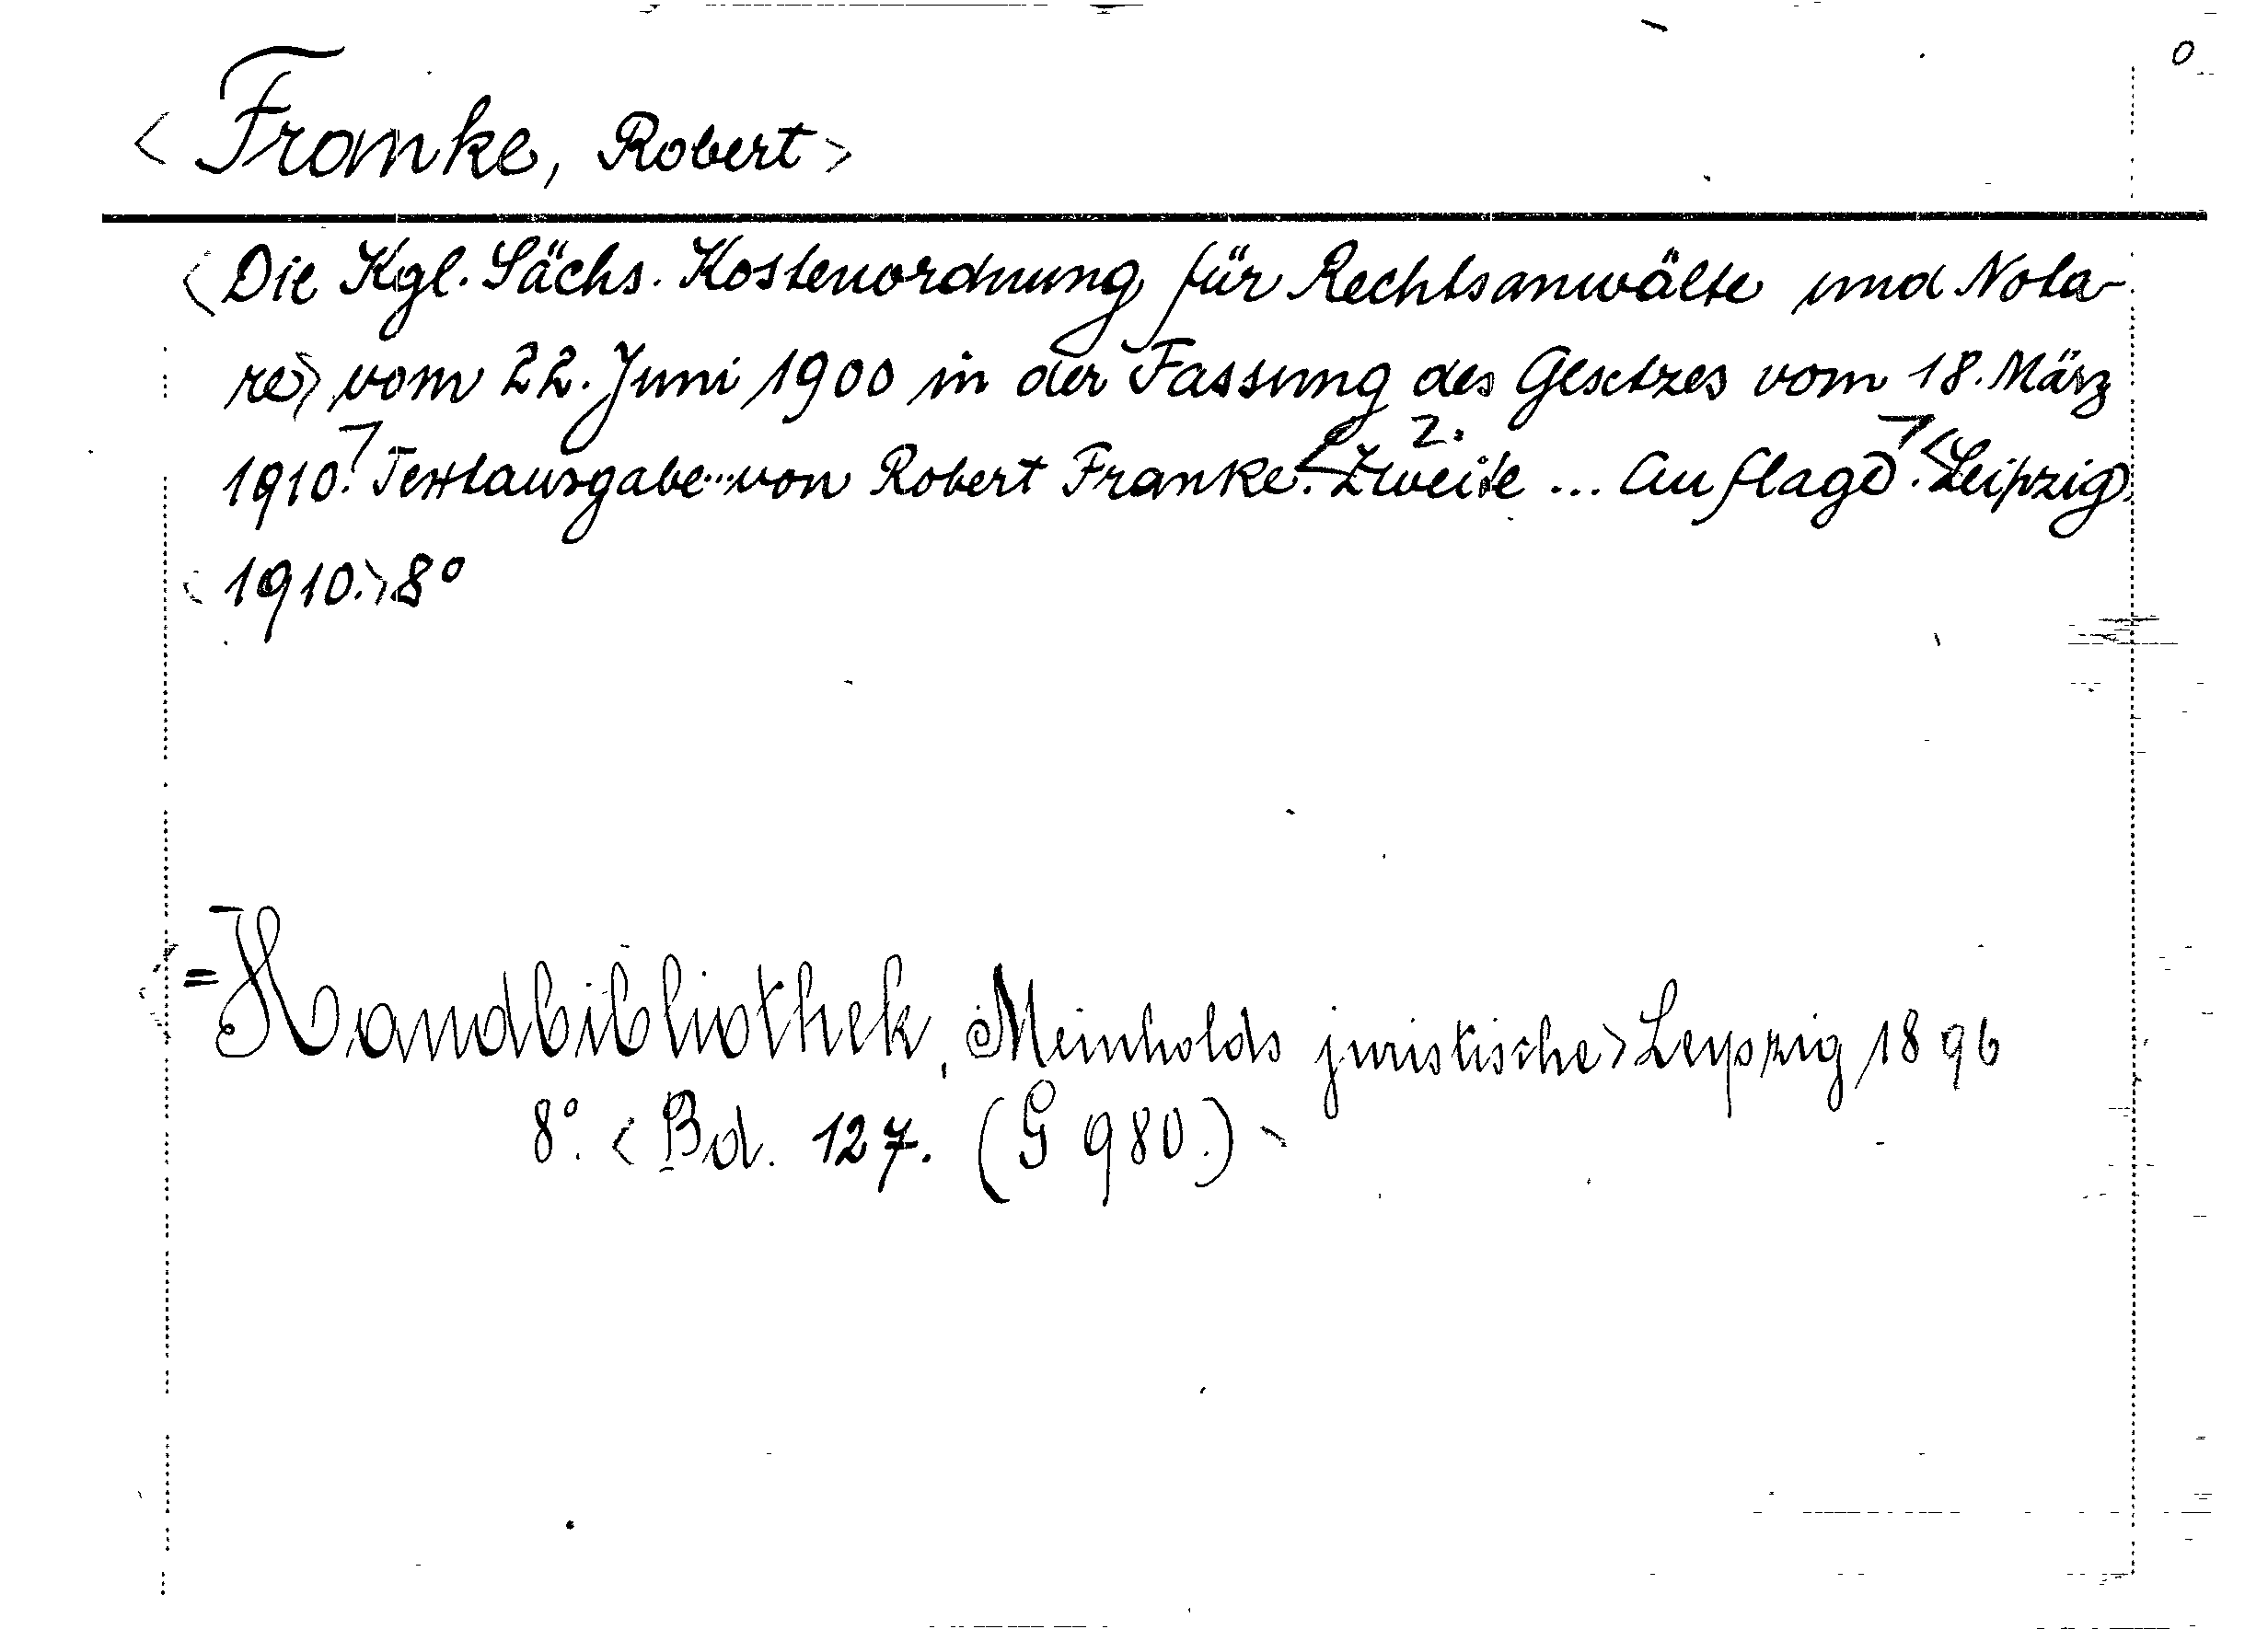 < Franke, Robert >
< Die Kgl. Sächs. Kostenordnung für Rechtsanwälte und Nota-
re> vom 22. Juni 1900 in der Fassung des Gesetzes vom 18. März
1910. Textausgabe...von Robert Franke. < Zweite 2. ... Auflage. < Leipzig
1910.> 8°
= Handbibliothek, Meinholds juristische> Leipzig 1896
8°. < Bd. 127. (G 980.) >